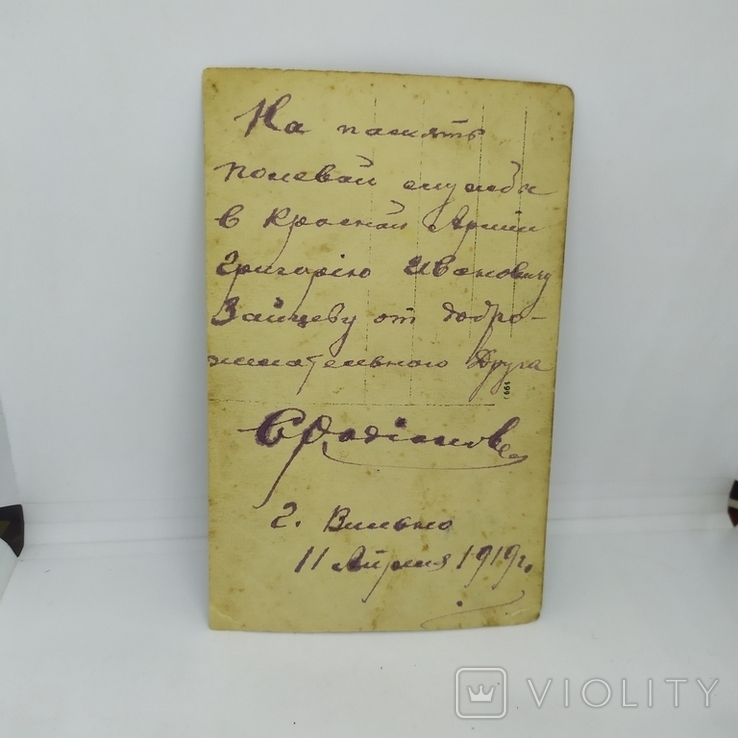 На память
полевой службы
в Красной Армии
Григорію Ивановичу
Зайцеву от добро-
желательного Друга
СРодіонов
г. Вильно
11 Апреля 1919 г.
VIOLITY